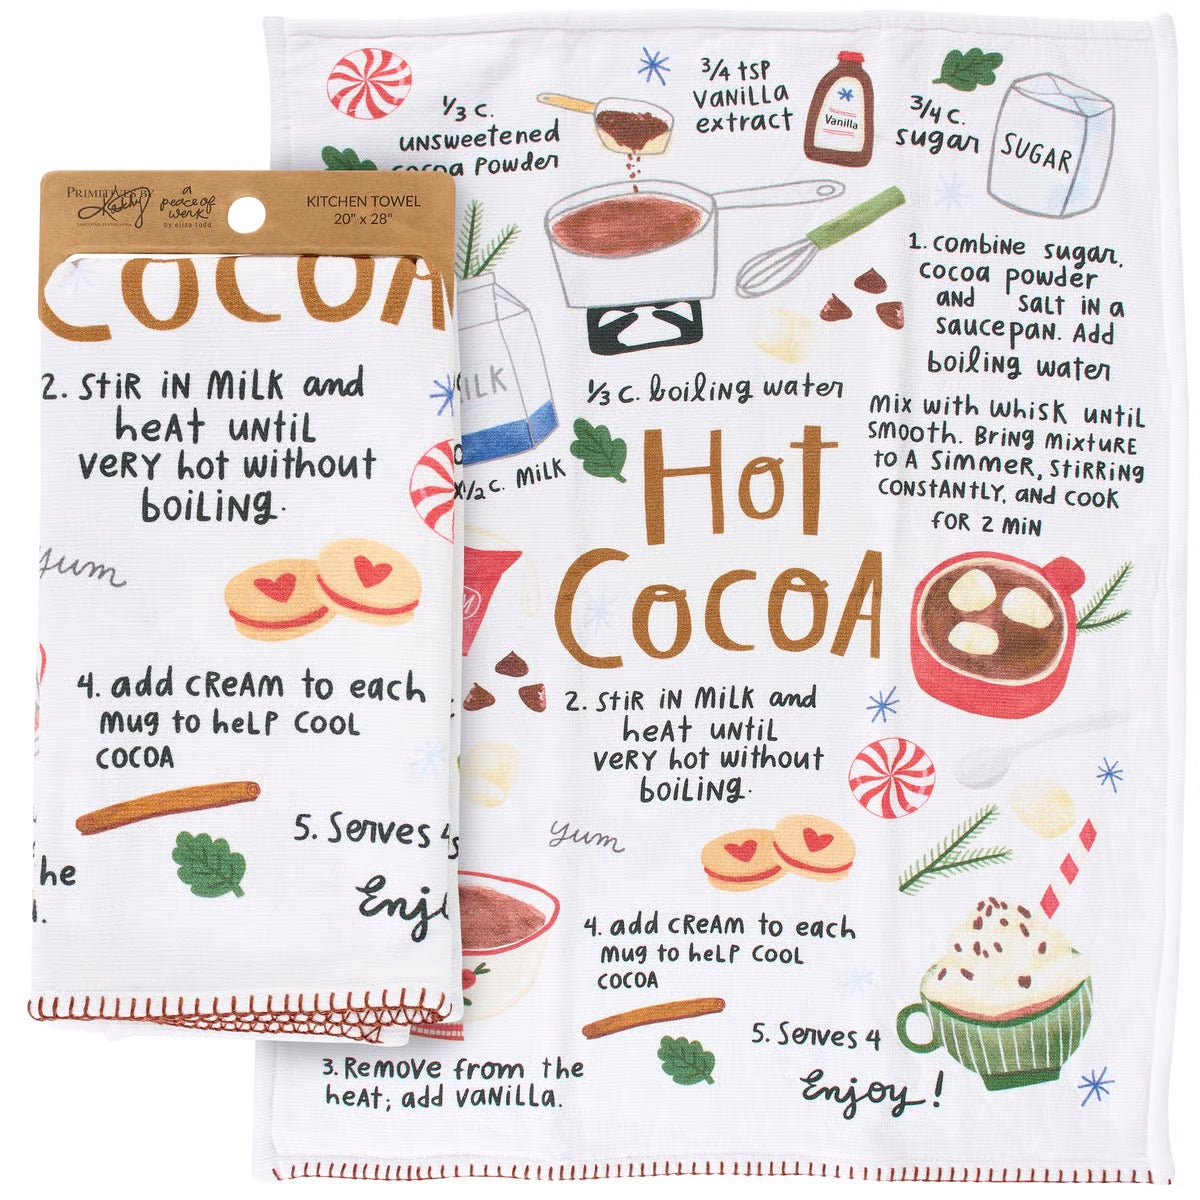 PRIMITIVES BY
Kathy
a
peace of
werk
by eliza todd
KITCHEN TOWEL
20" x 28"
COCOA
2. Stir in milk and
heat until
very hot without
boiling.
yum
4. add cream to each
mug to help cool
cocoa
5. Serves 4
he
1/3 c.
unsweetened
cocoa powder
3/4 tsp
vanilla
extract
Vanilla
3/4 c.
sugar
SUGAR
1. combine sugar,
cocoa powder
and salt in a
saucepan. Add
boiling water
mix with whisk until
smooth. Bring mixture
to a simmer, stirring
constantly, and cook
for 2 min
1/3 c. boiling water
1/2 c. milk
Hot
Cocoa
2. Stir in milk and
heat until
very hot without
boiling.
yum
4. add cream to each
mug to help cool
cocoa
5. Serves 4
3. Remove from the
heat; add vanilla.
Enjoy!